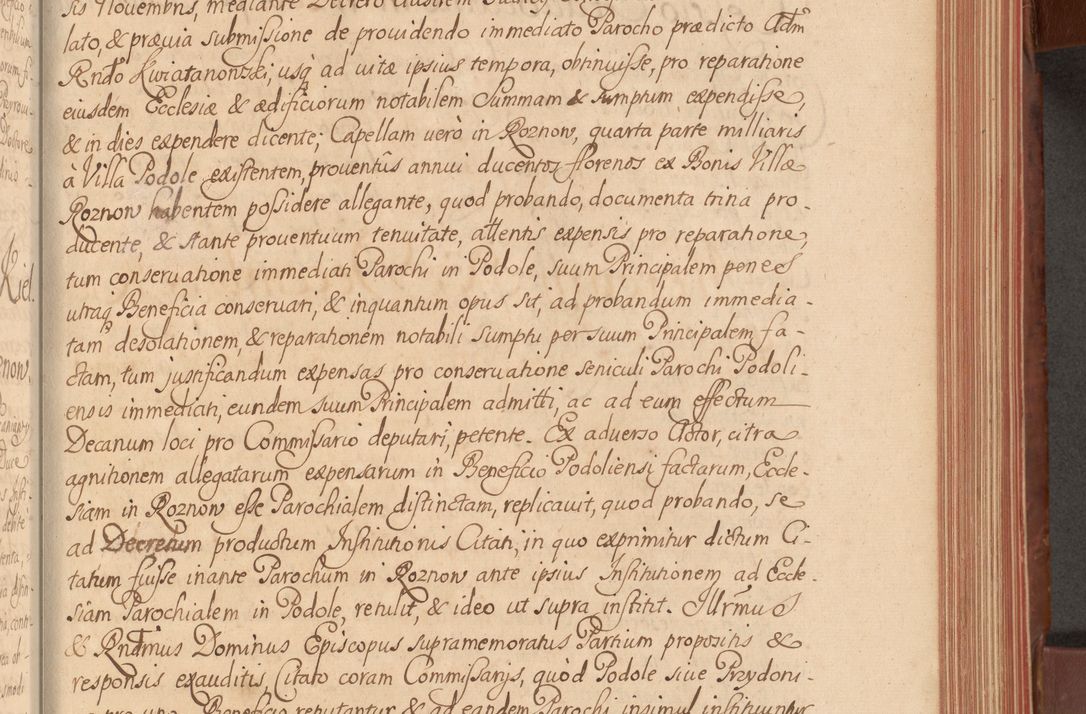 lato, & prævia submissione de providendo immediato Parocho prædicto Adm
Rndo Kwiatanonski, usq ad vitæ ipsius tempora, obtinuisse, pro reparatione
eiusdem Ecclesiæ & ædificiorum notabilem Summam & sumptum expendisse,
& in dies expendere dicente; Capellam verò in Roznow, quarta parte milliaris
à Villa Podole existentem, proventûs annui ducentos florenos ex Bonis Villæ
Roznow habentem possidere allegante, quod probando, documenta trina pro-
ducente, & stante proventuum tenuitate, attentis expensis pro reparatione,
tum conservatione immediati Parochi in Podole, suum Principalem penes
utraq Beneficia conservari, & inquantum opus sit, ad probandum immedia-
tam desolationem, & reparationem notabili sumptu per suum Principalem fa-
ctam, tum justificandum expensas pro conservatione seniculi Parochi Podoli-
ensis immediati, eundem suum Principalem admitti, ac ad eum effectum
Decanum loci pro Commissario deputari, petente. Ex adverso Actor, citra
agnitionem allegatarum expensarum in Beneficio Podoliensi factarum, Eccle-
siam in Roznow esse Parochialem distinctam, replicavit, quod probando, se
ad Decretum productum Institutionis Citati, in quo exprimitur dictum Ci-
tatum fuisse inante Parochum in Roznow ante ipsius Institutionem ad Eccle-
siam Parochialem in Podole, retulit, & ideo ut supra institit. Illrmus
& Rndmus Dominus Episcopus supramemoratus Partium propositis &
responsis exauditis, Citato coram Commissarijs, quòd Podole sive Przydoni-
pro uno Beneficio reputantur & ad eandem Parochi insimul instituuntur